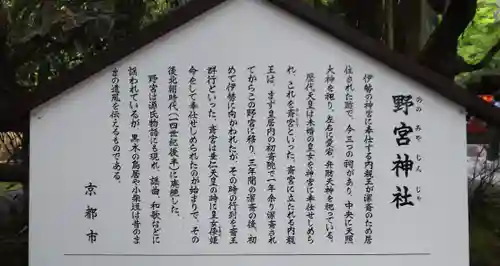 野宮神社
ののみやじんじゃ
伊勢の神宮に奉仕する内親王が潔斎のため居
住された跡で、今三つの祠があり、中央に天照
大神を祀り、左右に愛宕、弁財天神を祀っている。
歴代天皇は未婚の皇女を神宮に奉仕せしめら
れ、これを斎宮といった。斎宮に立たれる内親
王は、まず皇居内の初斎院で一年余り潔斎され
てからこの野宮に移り、三年間の潔斎の後、初
めて伊勢に向かわれたが、その時の行列を斎王
群行といった。斎宮は垂仁天皇の時に皇女倭姫
命をして奉仕せしめられたのが始まりで、その
後北朝時代(一四世紀後半)に廃絶した。
野宮は源氏物語にも現れ、謡曲、和歌などに
謡われているが、黒木の鳥居や小柴垣は昔のま
まの遺風を伝えるものである。
京都市